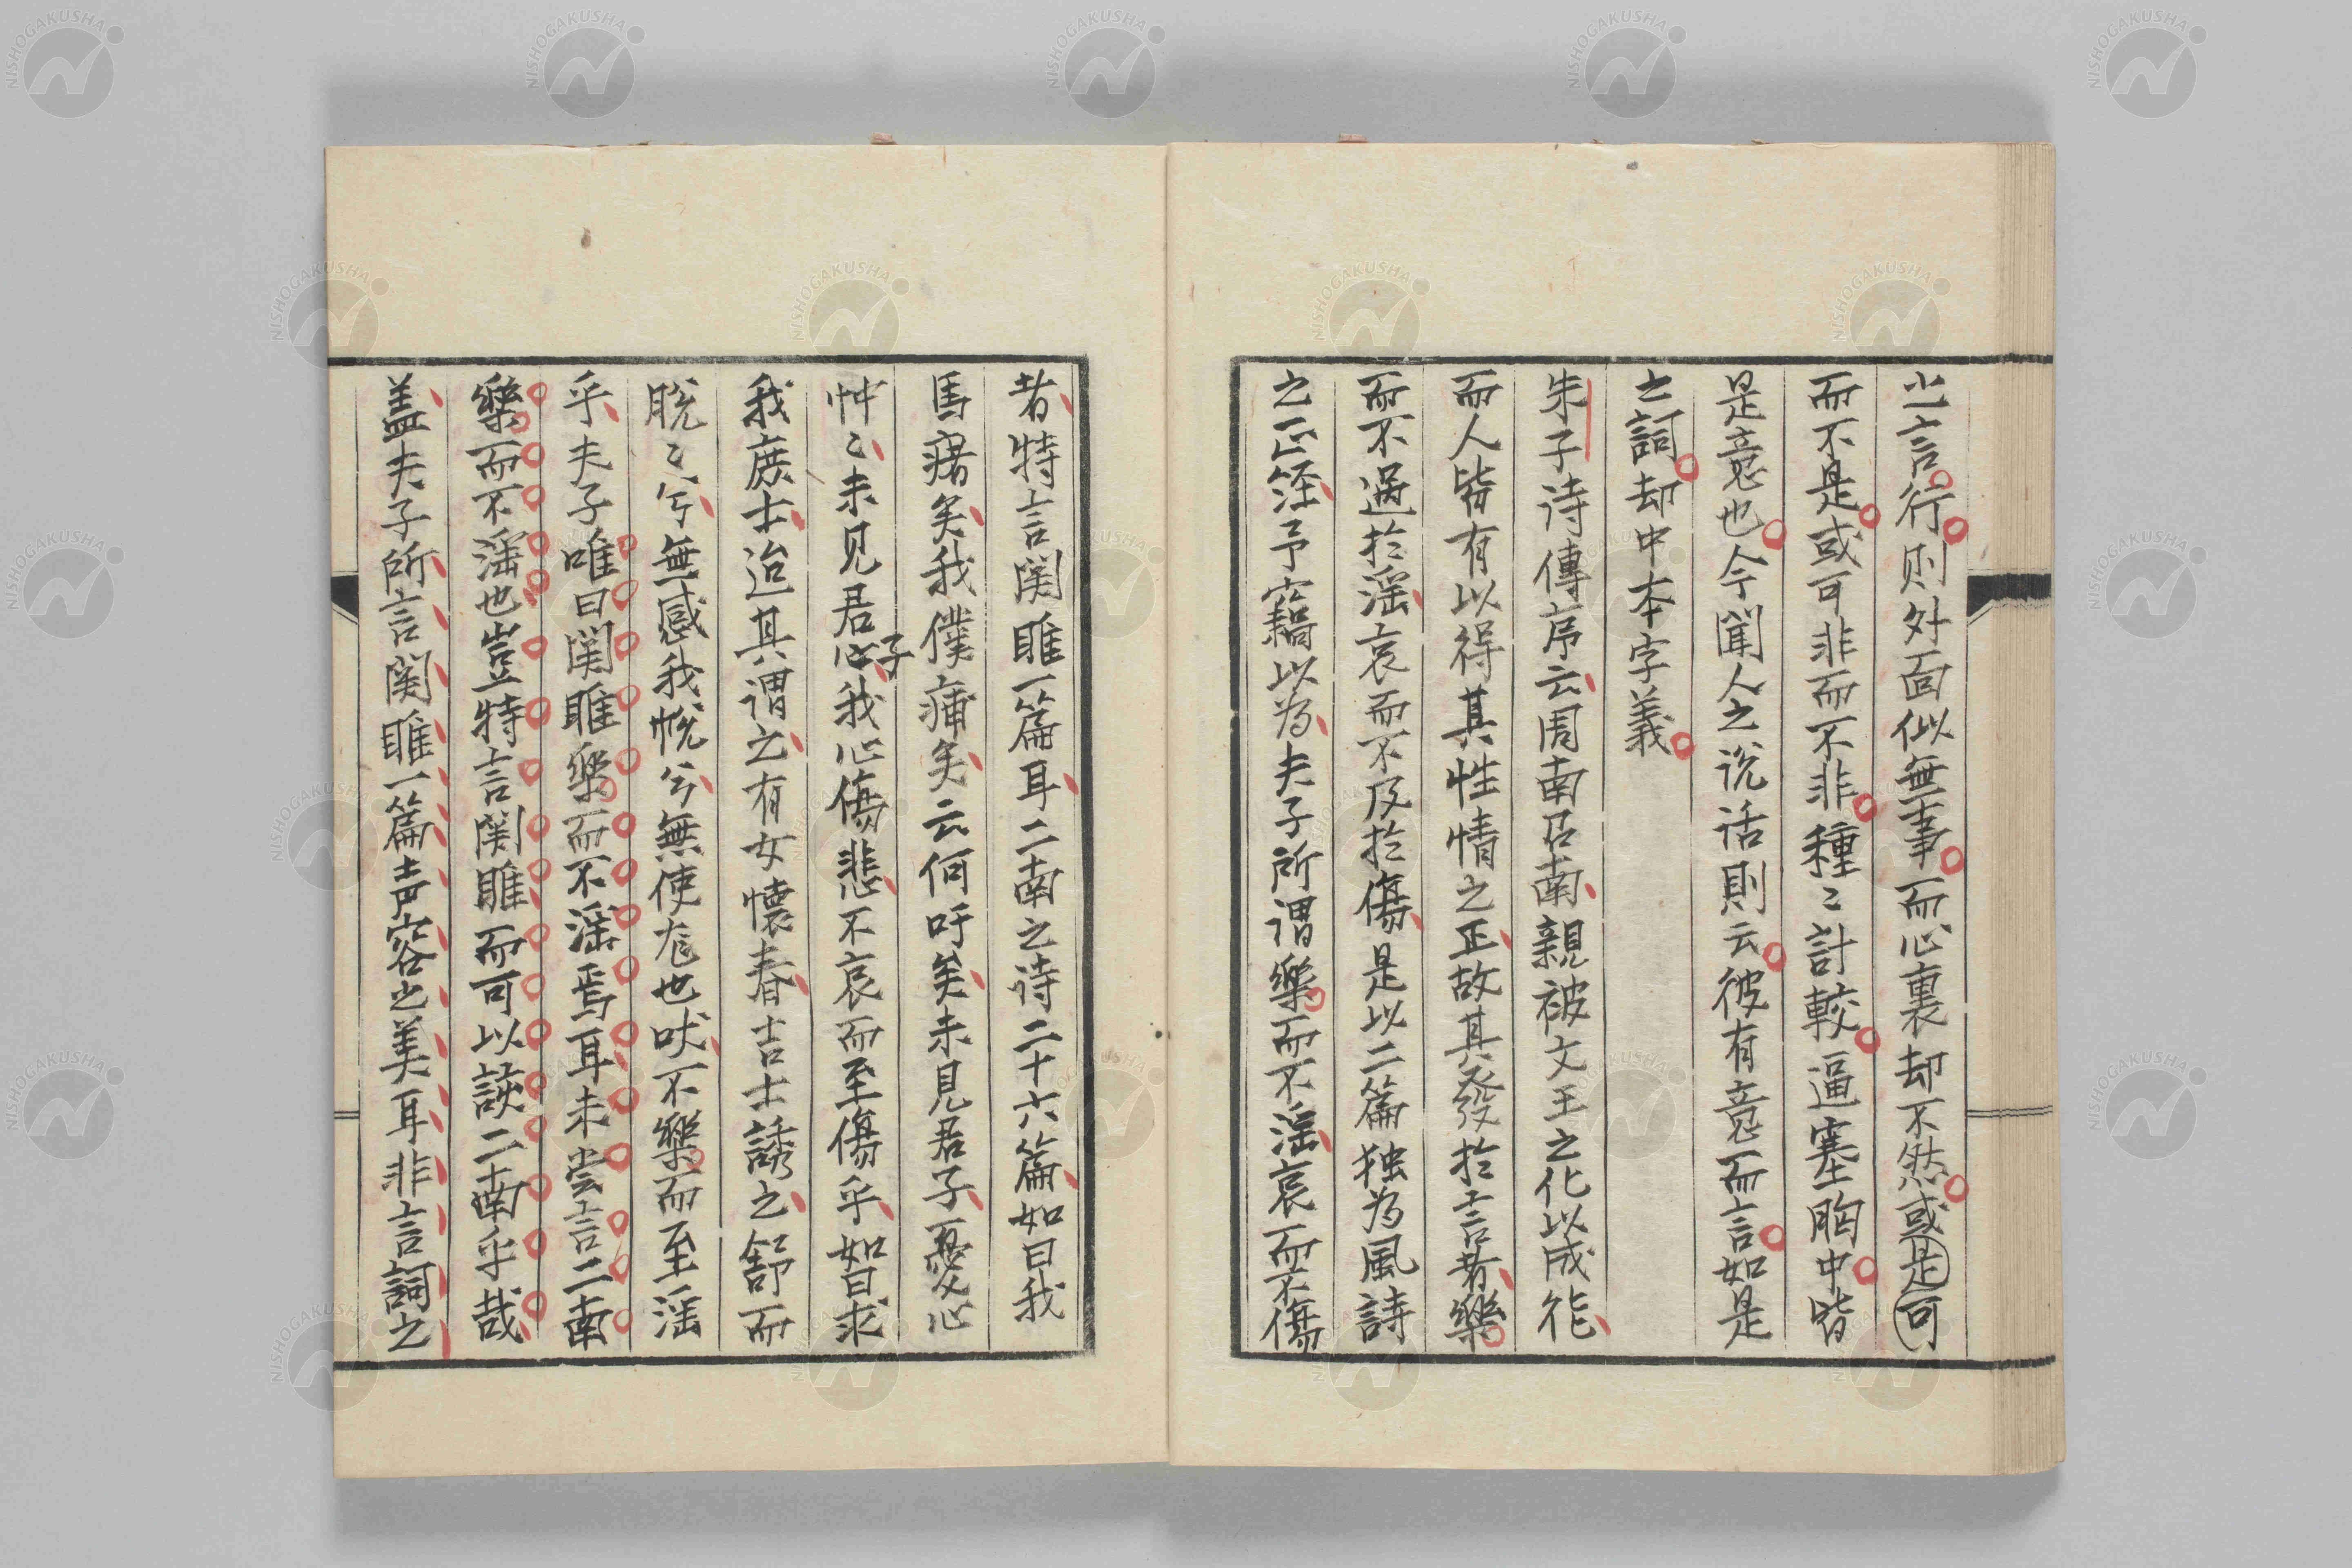 之言行則外面似無事而心裏却不然或是可
而不是或可非而不非種〻計較逼塞胸中皆
是意也今聞人之说话則云彼有意而言如是
之詞却中本字義
朱子诗傳序云周南召南親被文王之化以成德
而人皆有以得其性情之正故其發於言者樂
而不過於淫哀而不及於傷是以二篇独为風詩
之正経予竊以为夫子所謂樂而不淫哀而不傷
者特言関雎一篇耳二南之诗二十六篇如曰我
馬瘏矣我僕痡矣云何吁矣未見君子憂心
忡〻未見君子我心傷悲不哀而至傷乎如曰求
我庶士迨其謂之有女懐春吉士誘之舒而
脱〻兮無感我帨兮無使尨也吠不樂而至淫
乎夫子唯曰関雎樂而不淫焉耳未尝言二南
樂而不淫也豈特言関雎而可以該二南乎哉
盖夫子所言関雎一篇声容之美耳非言詞之
NISHOGAKUSHA